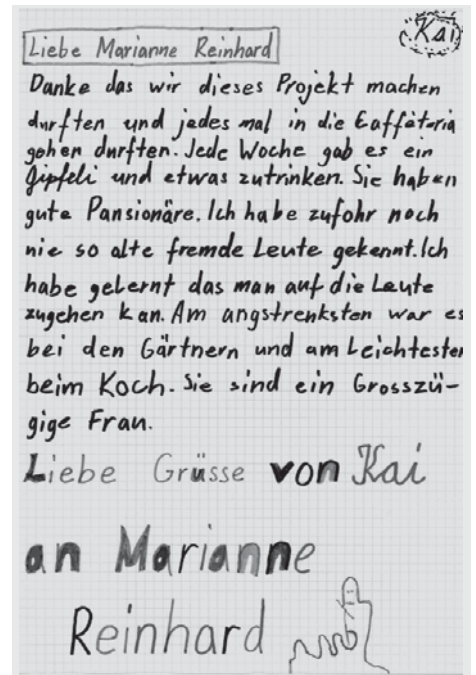 Kai
Liebe Marianne Reinhard
Danke das wir dieses Projekt machen
durften und jedes mal in die Caffäteria
gehen durften. Jede Woche gab es ein
Gipfeli und etwas zutrinken. Sie haben
gute Pansionäre. Ich habe zufohr noch
nie so alte fremde Leute gekennt. Ich
habe gelernt das man auf die Leute
zugehen kan. Am angstrenksten war es
bei den Gärtnern und am Leichtesten
beim Koch. Sie sind ein Grosszü-
gige Frau.
Liebe Grüsse von Kai
an Marianne
Reinhard